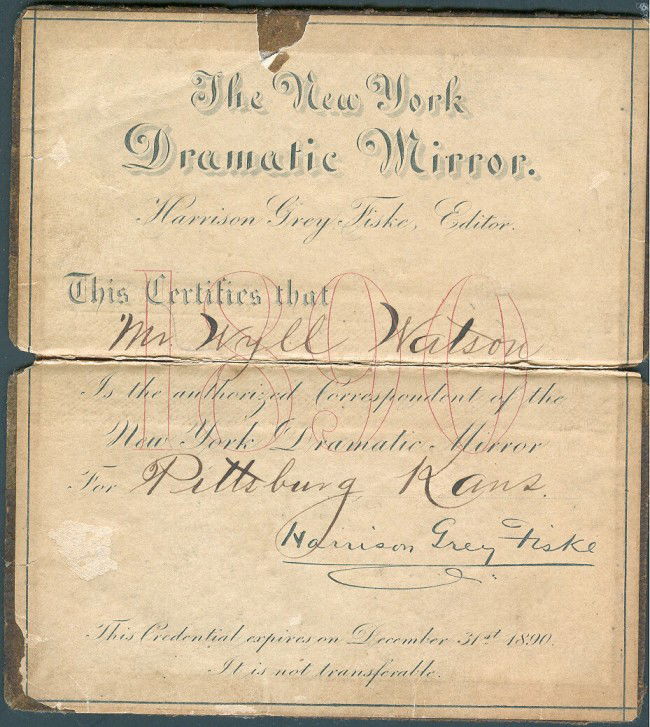 The New York
Dramatic Mirror.
Harrison Grey Fiske, Editor.
This Certifies that
1890
Mr Wyll Watson
Is the authorized Correspondent of the
New York Dramatic Mirror
For Pittsburg Kans.
Harrison Grey Fiske
This Credential expires on December 31st 1890.
It is not transferable.